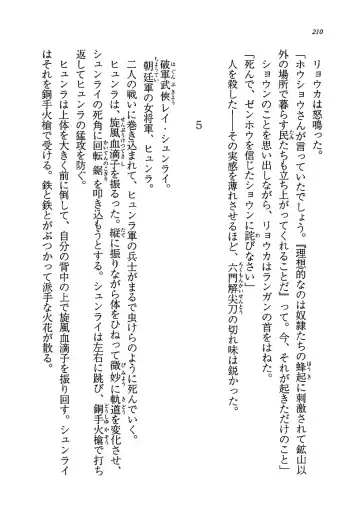 210
リョウカは怒鳴った。
「ホウショウさんが言っていたでしょう。『理想的なのは奴隷たちの蜂起に刺激されて鉱山以
外の場所で暮らす民たちも立ち上がってくれることだ』って。今、それが起きただけのこと」
ショウンのことを思い出しながら、リョウカはランガンの首をはねた。
「死んで、ゼンホウを信じたショウンに詫びなさい」
人を殺した――その実感を薄れさせるほど、六門解尖刀の切れ味は鋭かった。
5
破軍武侠レイ・シュンライ。
朝廷軍の女将軍、ヒュンラ。
二人の戦いに巻き込まれて、ヒュンラ軍の兵士がまるで虫けらのように死んでいく。
ヒュンラは、旋風血滴子を振るった。縦に振りながら体をひねって微妙に軌道を変化させ、
シュンライの死角に回転鋸を叩き込もうとする。シュンライは左右に跳び、鋼手火槍で打ち
返してヒュンラの猛攻を防ぐ。
ヒュンラは上体を大きく前に倒して、自分の背中の上で旋風血滴子を振り回す。シュンライ
はそれを鋼手火槍で受ける。鉄と鉄とがぶつかって派手な火花が散る。